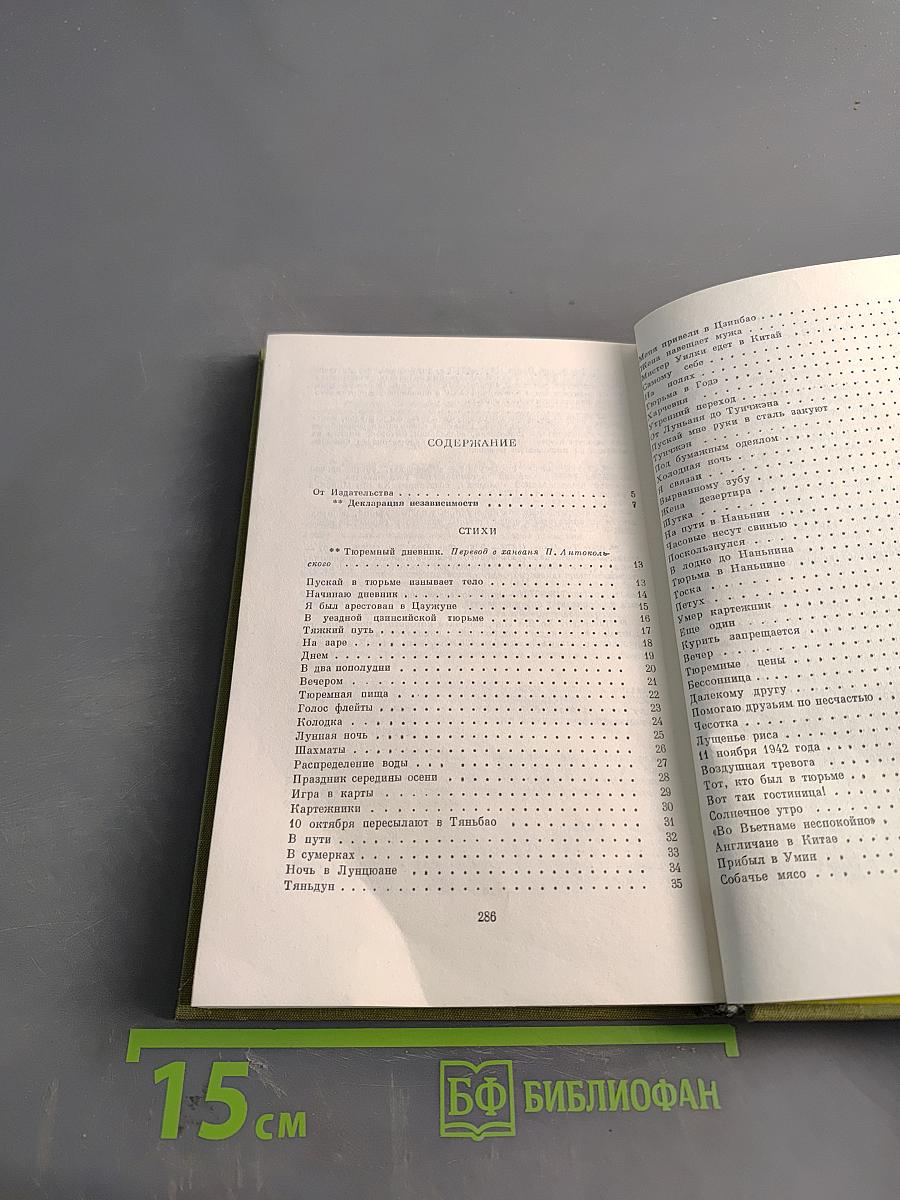 СОДЕРЖАНИЕ
От Издательства . . . . . . . . . . . . . . . . . . . . 5
** Декларация независимости . . . . . . . . . . . . . 7
СТИХИ
** Тюремный дневник. Перевод с ханваня П. Антоколь-
ского . . . . . . . . . . . . . . . . . . . . . . . . 13
Пускай в тюрьме изнывает тело . . . . . . . . . . . . 13
Начинаю дневник . . . . . . . . . . . . . . . . . . . 14
Я был арестован в Цзужуне . . . . . . . . . . . . . . 15
В уездной цзинсийской тюрьме . . . . . . . . . . . . 16
Тяжкий путь . . . . . . . . . . . . . . . . . . . . . 17
На заре . . . . . . . . . . . . . . . . . . . . . . . 18
Днем . . . . . . . . . . . . . . . . . . . . . . . . 19
В два пополудни . . . . . . . . . . . . . . . . . . . 20
Вечером . . . . . . . . . . . . . . . . . . . . . . . 21
Тюремная пища . . . . . . . . . . . . . . . . . . . . 22
Голос флейты . . . . . . . . . . . . . . . . . . . . 23
Колодка . . . . . . . . . . . . . . . . . . . . . . . 24
Лунная ночь . . . . . . . . . . . . . . . . . . . . . 25
Шахматы . . . . . . . . . . . . . . . . . . . . . . . 26
Распределение воды . . . . . . . . . . . . . . . . . 27
Праздник середины осени . . . . . . . . . . . . . . . 28
Игра в карты . . . . . . . . . . . . . . . . . . . . 29
Картежники . . . . . . . . . . . . . . . . . . . . . 30
10 октября пересылают в Тяньбао . . . . . . . . . . . 31
В пути . . . . . . . . . . . . . . . . . . . . . . . 32
В сумерках . . . . . . . . . . . . . . . . . . . . . 33
Ночь в Лунцюане . . . . . . . . . . . . . . . . . . . 34
Тяньдун . . . . . . . . . . . . . . . . . . . . . . . 35
286
Меня привели в Цзинбао
Жена навещает мужа
Мистер Уилки едет в Китай
Самому себе
На полях
Тюрьма в Годэ
Харчевня
Утренний переход
От Луньаня до Тунчжэна
Пускай мне руки в сталь закуют
Тунчжэн
Под бумажным одеялом
Холодная ночь
Я связан
Вырванному зубу
Жена дезертира
Шутка
На пути в Наньнин
Часовые несут свинью
Поскользнулся
В лодке до Наньнина
Тюрьма в Наньнине
Тоска
Петух
Умер картежник
Еще один
Курить запрещается
Вечер
Тюремные цены
Бессонница
Далекому другу
Помогаю друзьям по несчастью
Чесотка
Лущенье риса
11 ноября 1942 года
Воздушная тревога
Тот, кто был в тюрьме
Вот так гостиница!
Солнечное утро
«Во Вьетнаме неспокойно»
Англичане в Китае
Прибыл в Умин
Собачье мясо
15 см
БФ БИБЛИОФАН